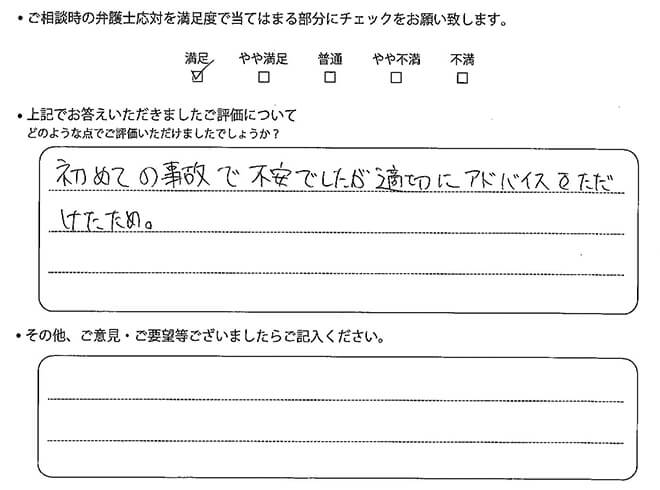 ・ご相談時の弁護士応対を満足度で当てはまる部分にチェックをお願い致します。
満足 やや満足 普通 やや不満 不満
・上記でお答えいただきましたご評価について
どのような点でご評価いただけましたでしょうか？
初めての事故で不安でしたが適切にアドバイスをただ
けたため。
・その他、ご意見・ご要望等ございましたらご記入ください。